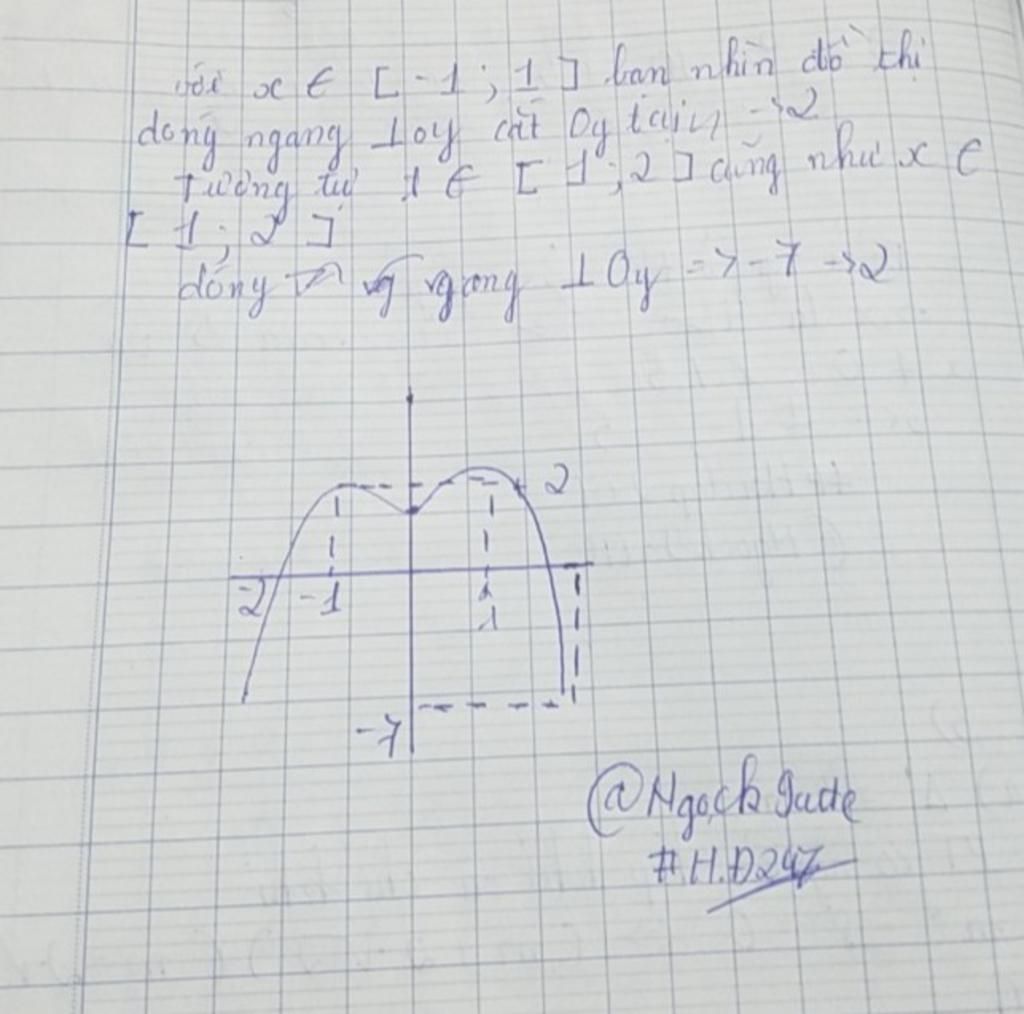 với x ∈ [ -1 ; 1 ] bạn nhìn đồ thị
dóng ngang ⊥ oy cắt Oy tại →2
Tương tự 1 ∈ [ 1 ; 2 ] cũng như x ∈
[ 1 ; 2 ]
dóng ngang ⊥ Oy => -7 →2
2
-2 -1 1
1
-7
@Ngọck
#.H.Đ247